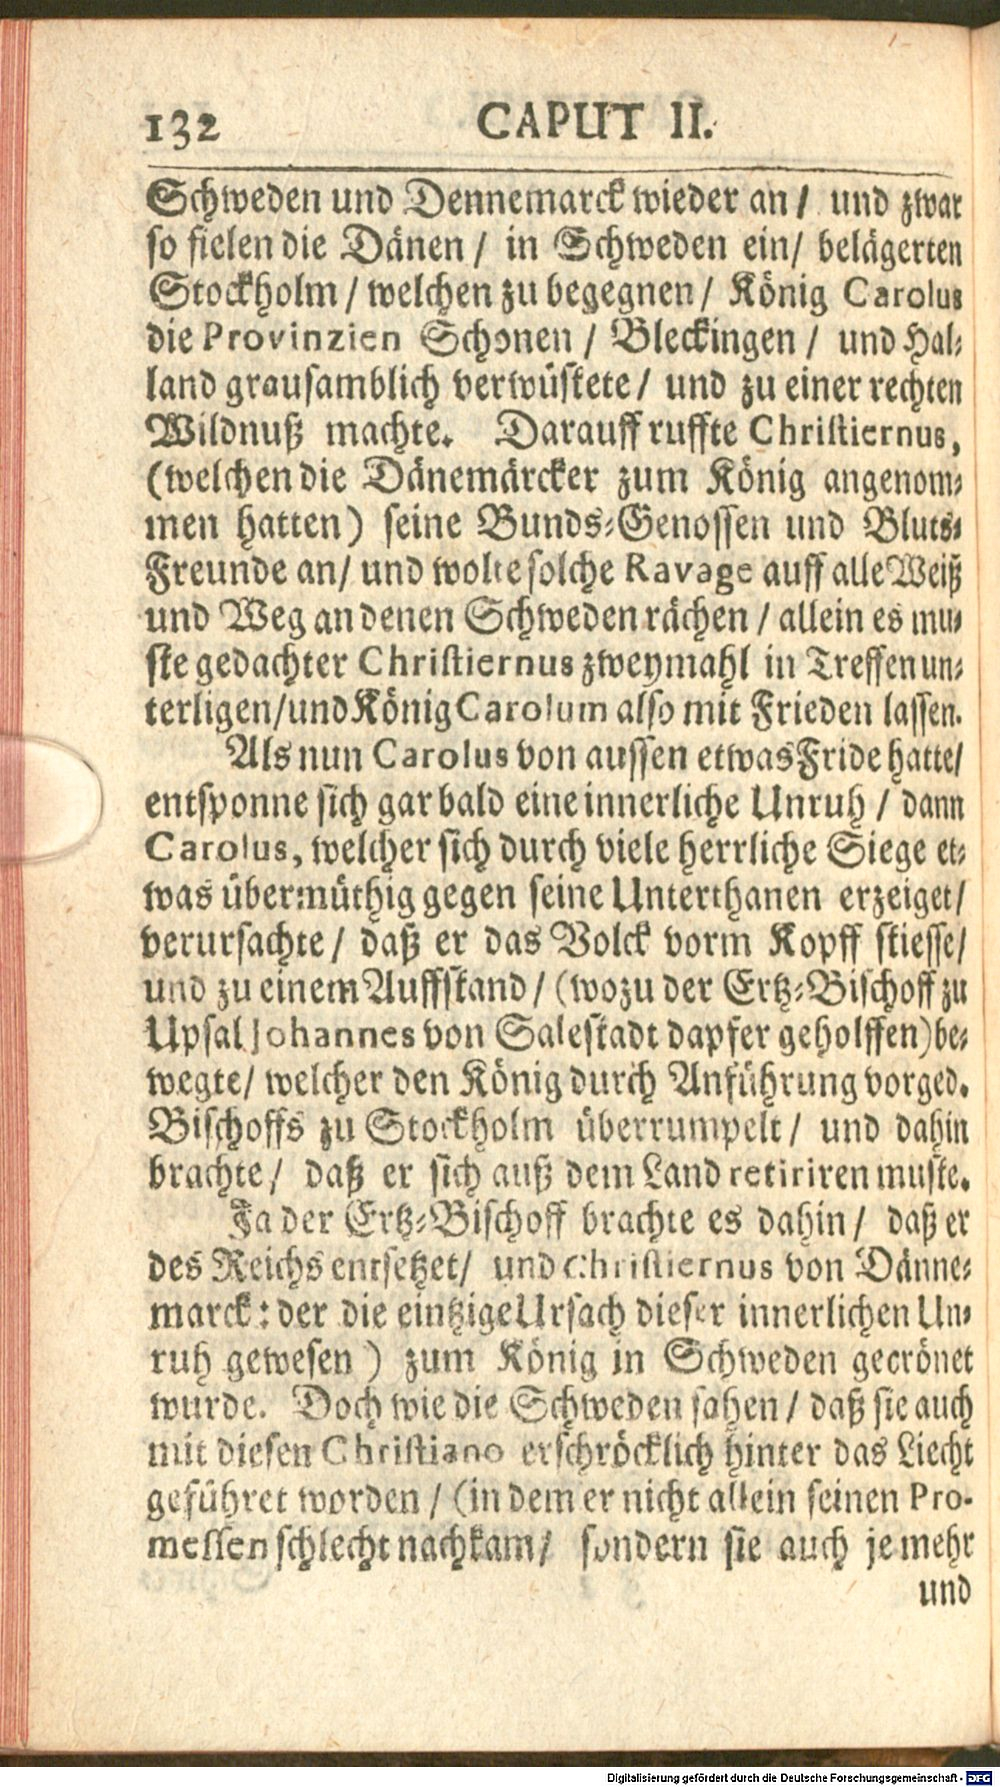 132 CAPUT II.
Schweden und Dennemarck wieder an / und zwar
so fielen die Dänen / in Schweden ein / belägerten
Stockholm / welchen zu begegnen / König Carolus
die Provinzien Schonen / Bleckingen / und Hal-
land grausamblich verwüstete / und zu einer rechten
Wildnuß machte. Darauff ruffte Christiernus,
(welchen die Dänemärcker zum König angenom-
men hatten) seine Bunds-Genossen und Bluts-
Freunde an / und wolte solche Ravage auff alle Weiß
und Weg an denen Schweden rächen / allein es mu-
ste gedachter Christiernus zweymahl in Treffen un-
terligen / und König Carolum also mit Frieden lassen.
Als nun Carolus von aussen etwas Fride hatte /
entsponne sich gar bald eine innerliche Unruh / dann
Carolus, welcher sich durch viele herrliche Siege et-
was übermüthig gegen seine Unterthanen erzeiget /
verursachte / daß er das Volck vorm Kopff stiesse /
und zu einem Auffstand / (wozu der Ertz-Bischoff zu
Upsal Johannes von Salestadt dapfer geholffen) be-
wegte / welcher den König durch Anführung vorged.
Bischoffs zu Stockholm überrumpelt / und dahin
brachte / daß er sich auß dem Land retiriren muste.
Ja der Ertz-Bischoff brachte es dahin / daß er
des Reichs entsetzet / und Christiernus von Dänne-
marck : der die eintzige Ursach dieser innerlichen Un-
ruh gewesen ) zum König in Schweden gecrönet
wurde. Doch wie die Schweden sahen / daß sie auch
mit diesen Christiano erschröcklich hinter das Liecht
geführet worden / (in dem er nicht allein seinen Pro-
messen schlecht nachkam / sondern sie auch je mehr
und
Digitalisierung gefördert durch die Deutsche Forschungsgemeinschaft - DFG